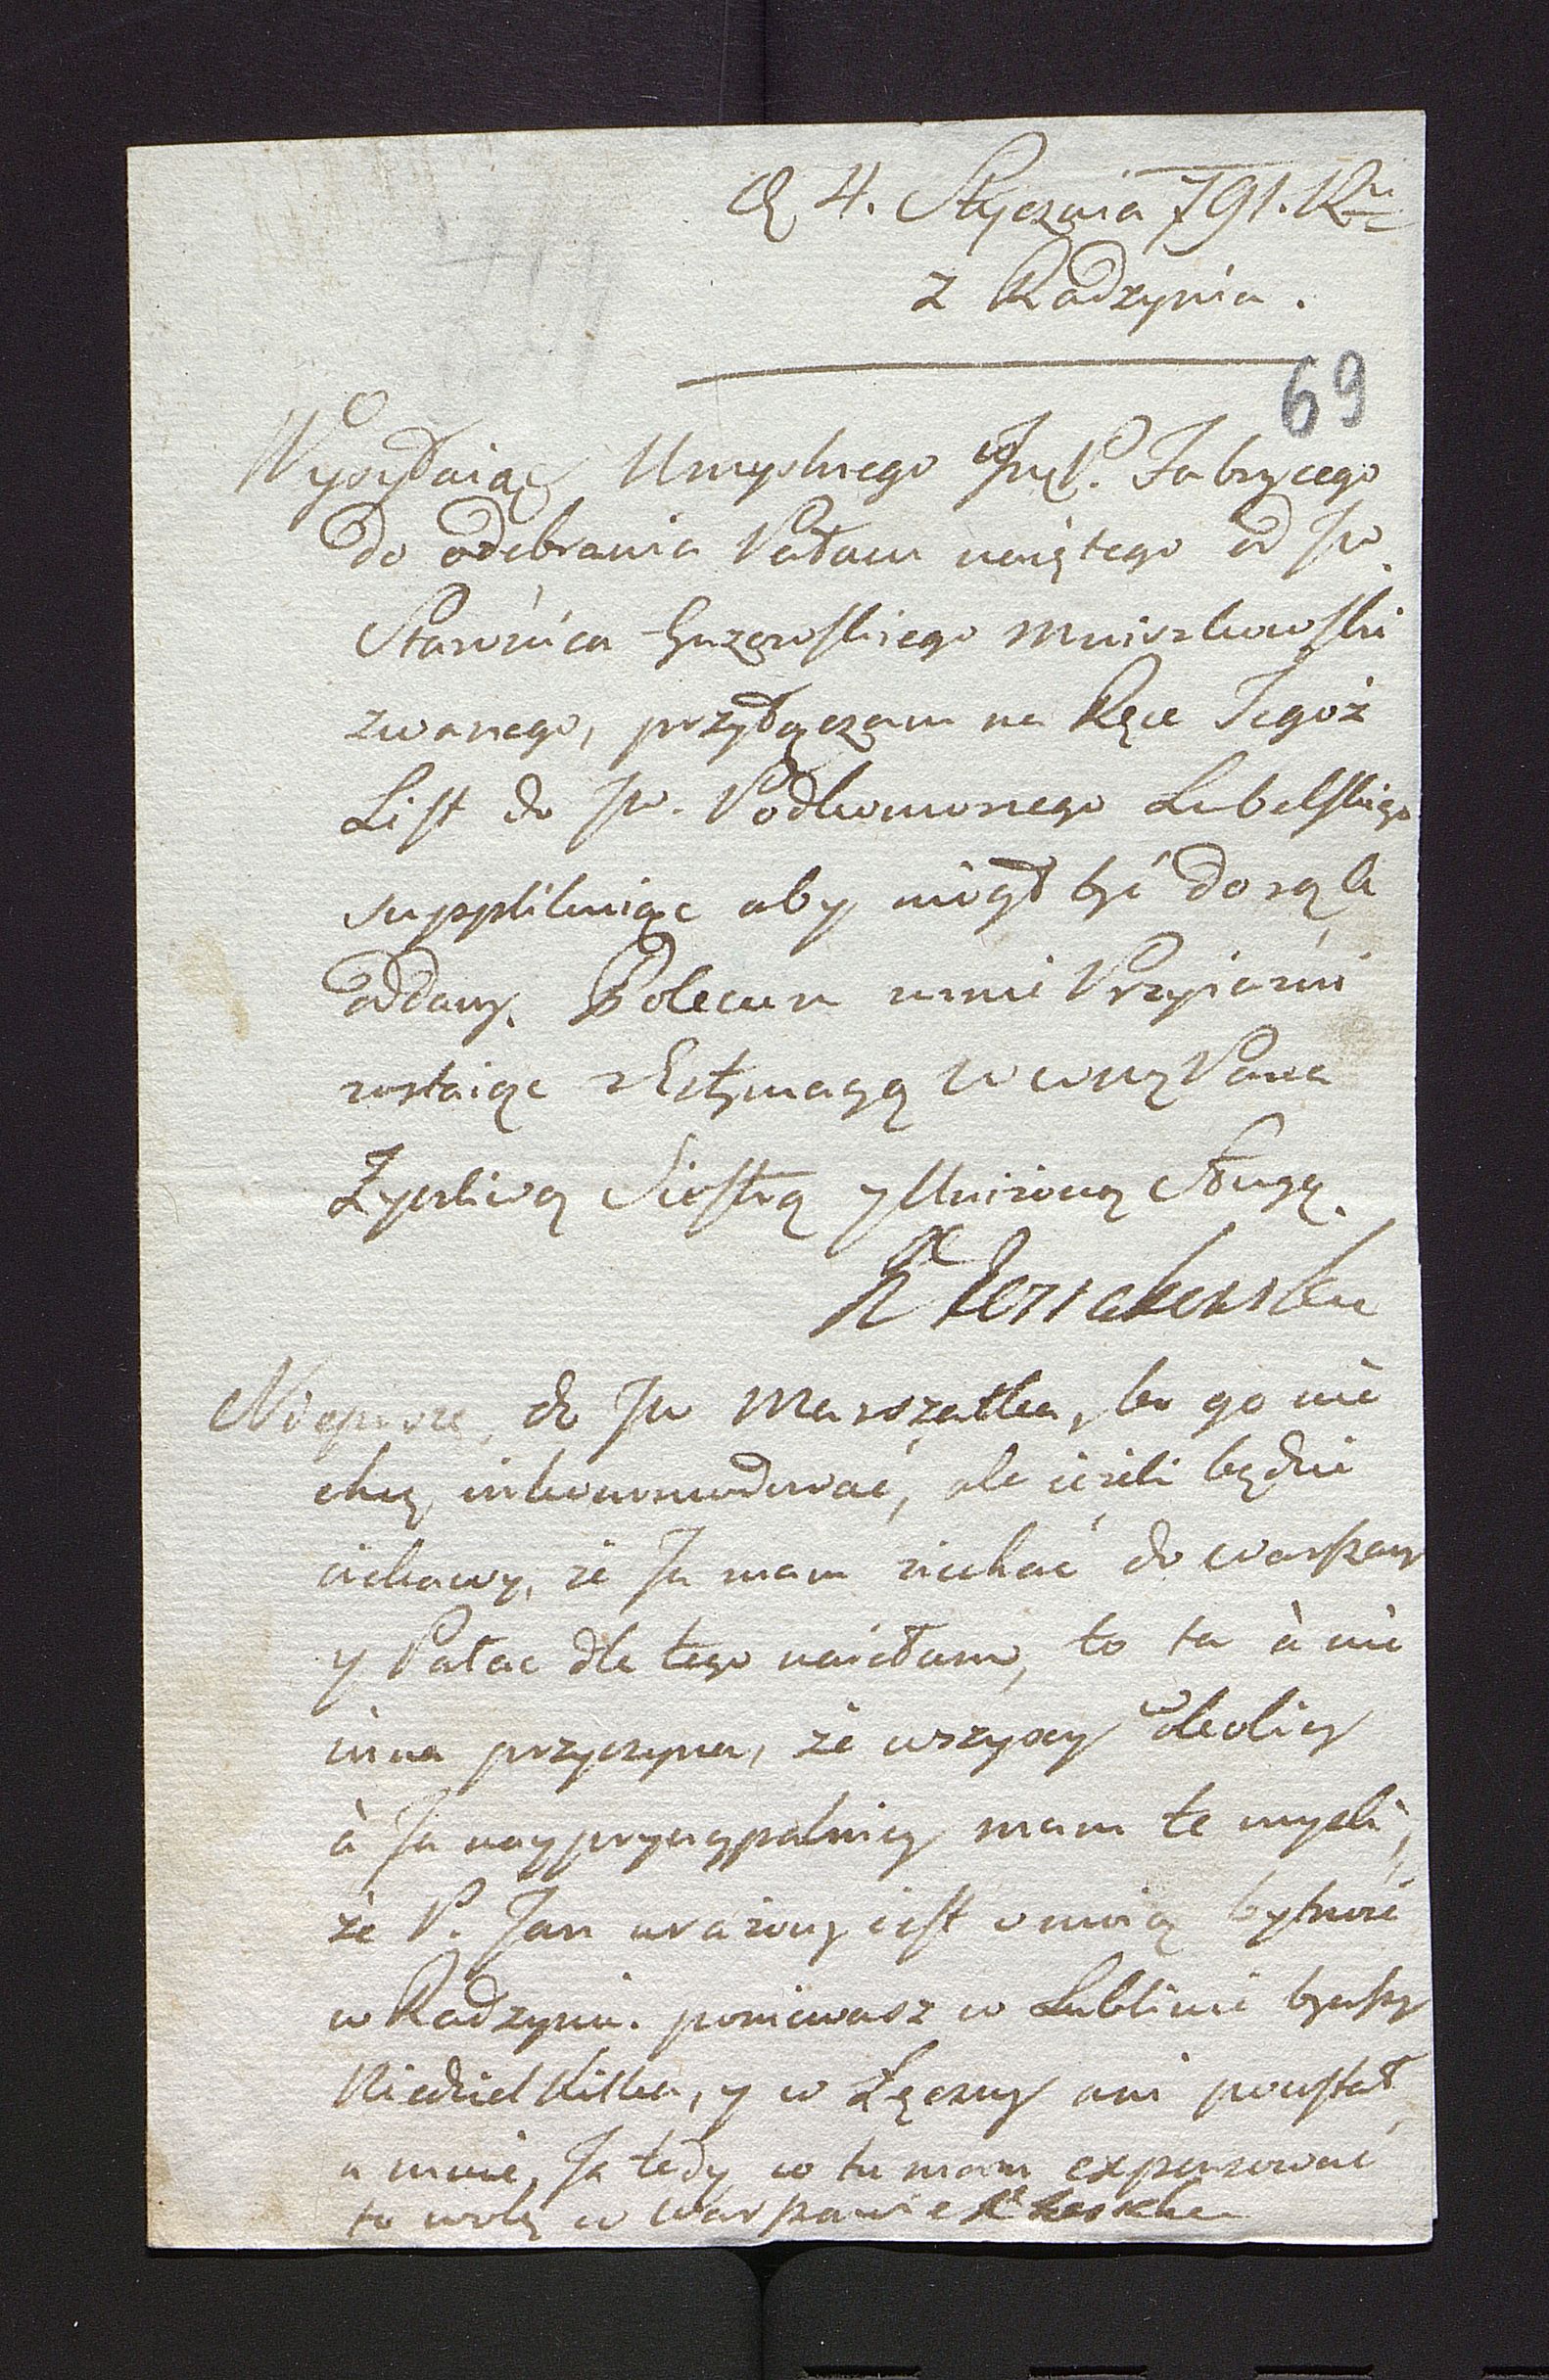 d. 4. Stycznia 791. Ru
z Radzynia.
69
Wysyłaiąc Umyslnego JmP. Fabrycego
do odebrania Pałacu naiętego od Jw.
Starościca Guzowskiego Mniszkowski
zwanego, przyłączam na Ręce Tegoż
List do Jw. Podkomorzego Lubelskiego
supplikuiąc aby mógł być do rąk
oddany. Polecam mnie Przyiaźni
zostaiąc z Estymacyą WWM Pana
Zyczliwą Siostrą y Unizoną Sługą.
K Kossakowska
Niepiszę do Jw Marszałka, bo go nie
chcę inkommodować, ale ieżeli będzie
ciekawy, że Ja mam iechać do Warszawy
y Pałac dla tego naięłam, to ta à nie
inna przyczyna, że wszyscy w okolicy
à Ja nayprzyncypalniey mam te myśli,
że P. Jan urażony iest o moią bytność
w Radzyniu. poniewasz w Lublinie bywszy
Niedziel kilka, y w Łęczny ani postał
u mnie, Ja tedy co tu mam expensować
to wolę w Warszawie